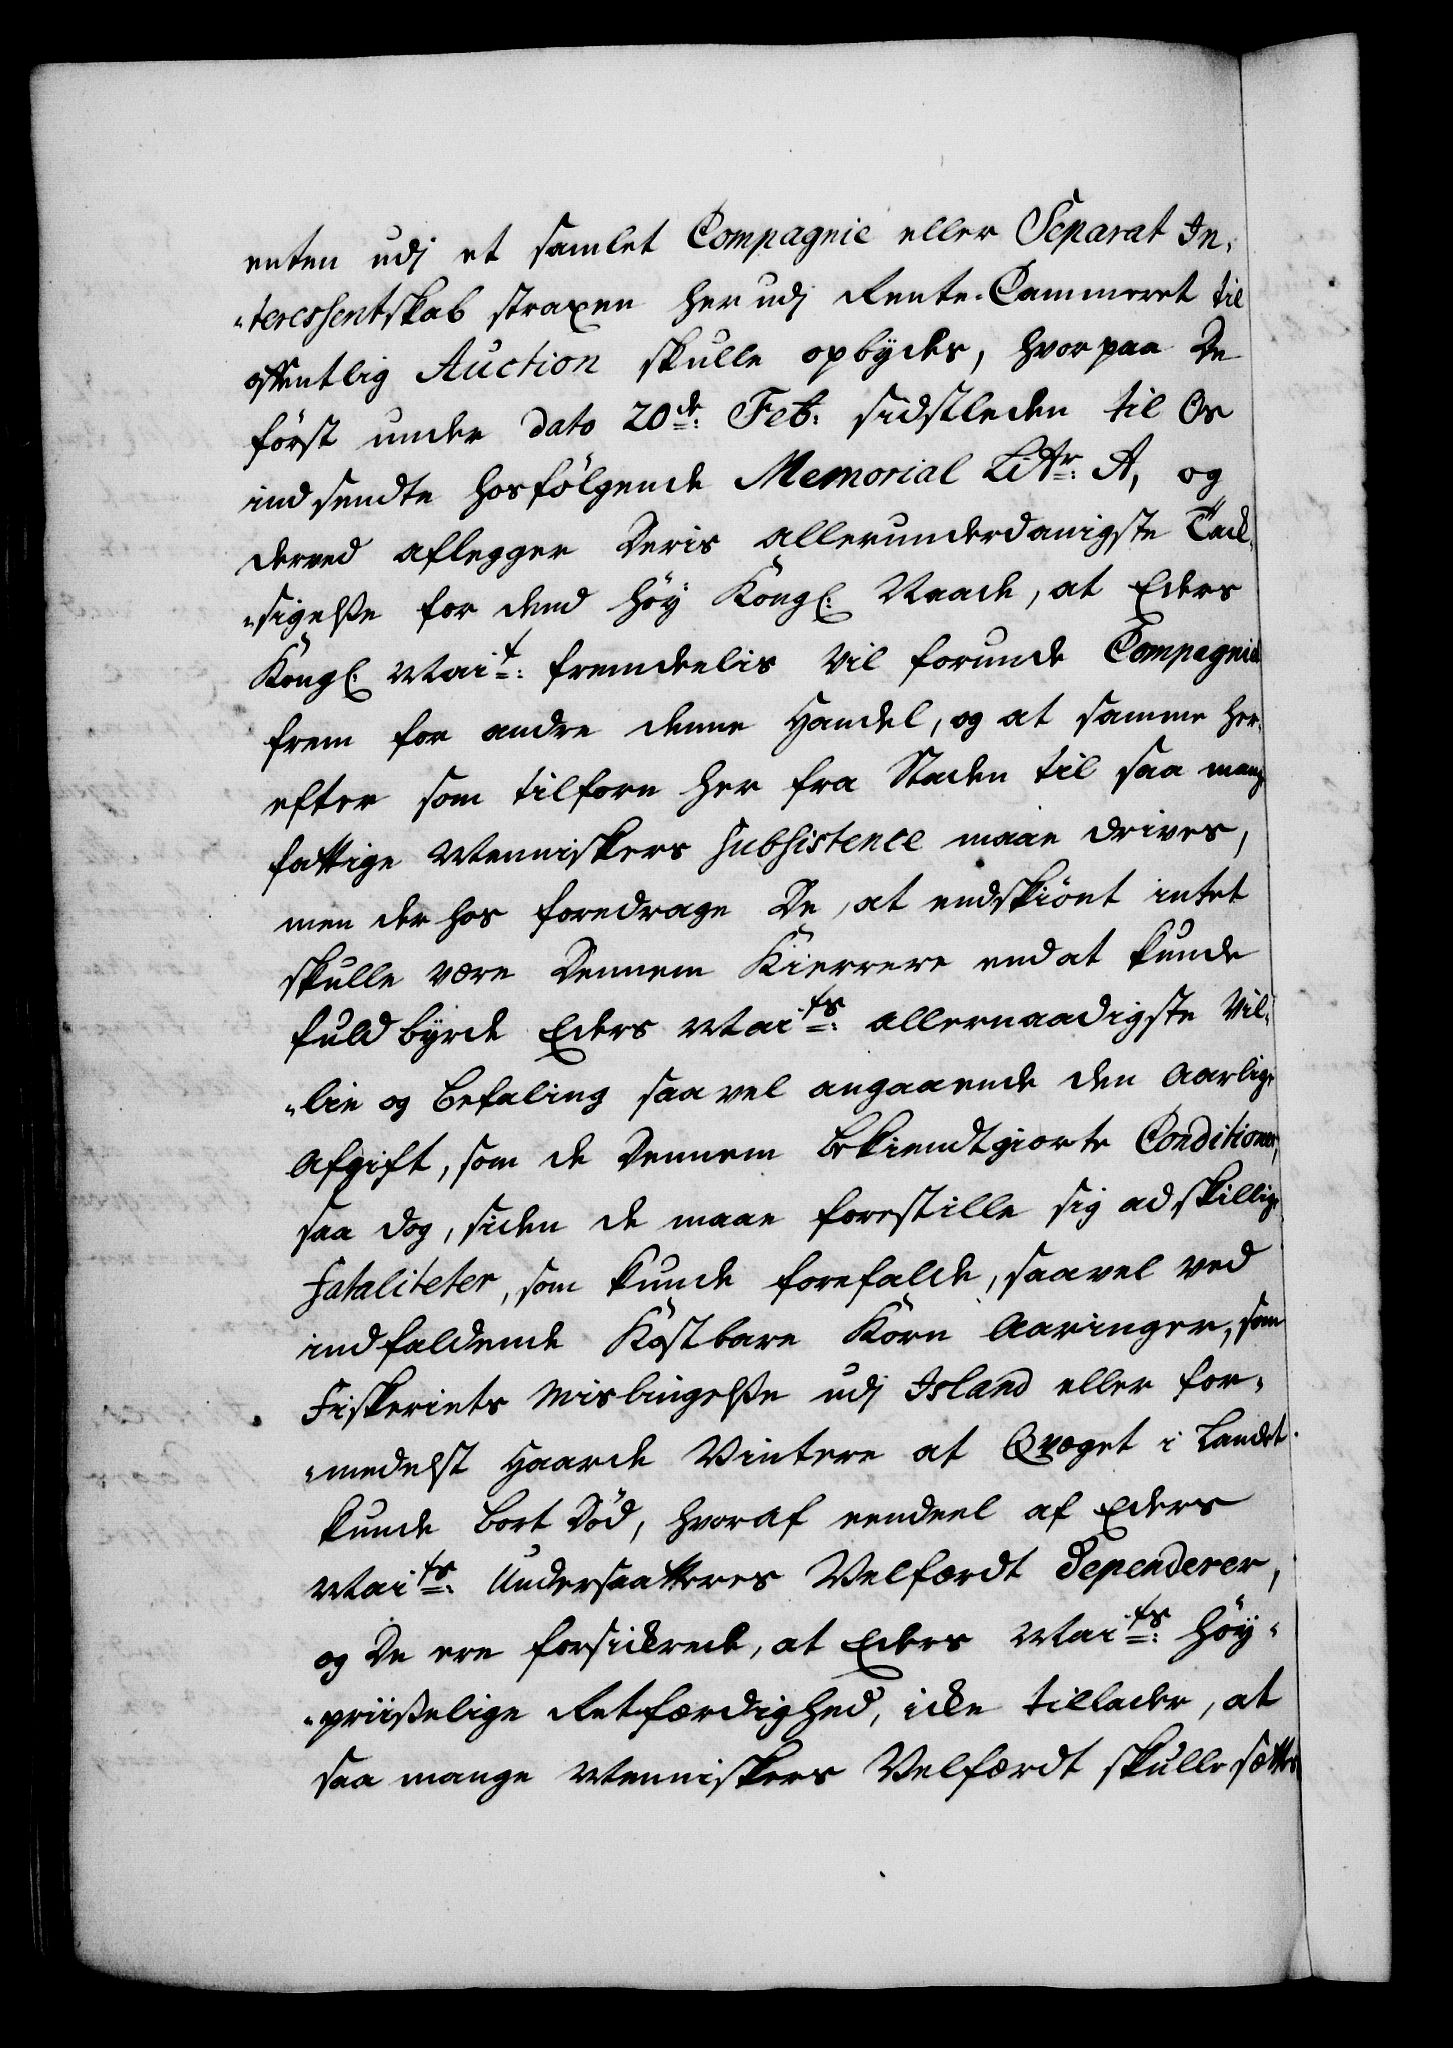 enten udj et samlet Compagnie eller Separat In-
-teressentskab straxen her udj Rente-Cammeret til
offentlig Auction skulle opbÿdes, hvorpaa De
först under dato 20de: Feb: sidstleden til Os
indsendte hosfölgende Memorial Littr: A, og
derved aflegger Deris allerunderdanigste Tack-
-sigelsse for dend höÿ Kongl: Naade, at Eders
Kongl: Mait: fremdeelis vil forunde Compagniet
frem for andre denne Handel, og at samme her-
efter som tilforn her fra Staden til saa mange
fattige Menniskers Subsistence maae drives,
men der hos foredrage De, at endskiönt intet
skulle være Dennem Kierrere end at kunde
fuldbÿrde Eders Maits: allernaadigste Vil-
-lie og befaling saa vel angaaende den Aarlige
Afgift, som de Dennem bekiendtgiorte Conditioner,
saa dog, siden de maae forestille sig adskillige
Fataliteter, som kunde forefalde, saavel ved
indfaldende Kostbare Korn Aaringer, som
Fiskeriets Mislingelsse udj Island eller for-
-medelst Haarde Vintere at Qvæget i Landet
kunde bort Död, hvoraf eendeel af Eders
Maits: Undersaatteres Velfærdt Dependerer,
og De ere forsickrede, at Eders Maits: Höÿ-
-priisselige Retfærdighed, icke tillader, at
saa mange Menniskers Velfærdt skulle sættes